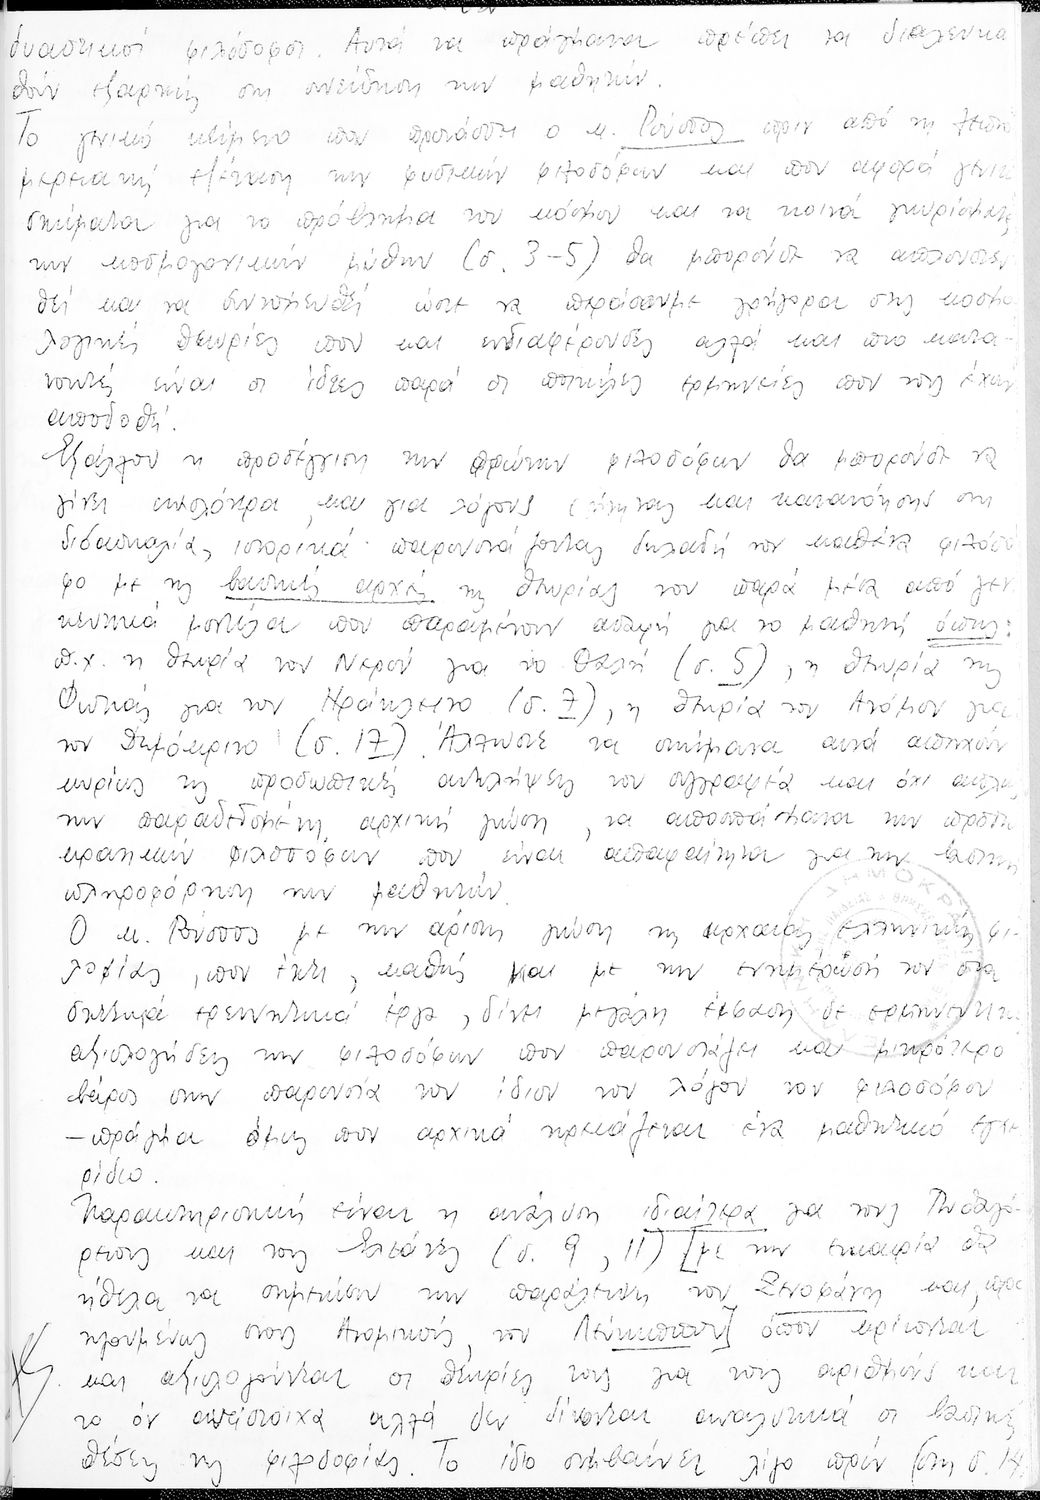 δυαστικοί φιλόσοφοι. Αυτά τα πράγματα πρέπει να διαλευκα
θούν εξαρχής στη συνείδηση των μαθητών.
Το γενικό κείμενο που προτάσσει ο κ. Ρούσσος πριν από τη λεπτο
μερειακή εξέταση των φυσικών φιλοσόφων και που αφορά γενικά
σχήματα για το πρόβλημα του κόσμου και τα κοινά γνωρίσματα
των κοσμογονικών μύθων (σ. 3-5) θα μπορούσε να απλουστευ
θεί και να συντομευθεί ώστε να περάσουμε γρήγορα στις κοσμο
λογικές θεωρίες που και ενδιαφέρουσες αλλά και πιο κατα-
νοητές είναι οι ίδιες παρά οι ποικίλες ερμηνείες που τους έχουν
αποδοθεί.
Εξάλλου η προσέγγιση των πρώτων φιλοσόφων θα μπορούσε να
γίνει ευκολότερα, και για λόγους και κατανόησης στη
διδασκαλία, ιστορικά· παρουσιάζοντας δηλαδή τον καθένα φιλόσο
φο με τις βασικές αρχές της θεωρίας του παρά μέσα από γεν
κευτικά μοντέλα που παραμένουν ασαφή για το μαθητή όπως:
π.χ. η θεωρία του Νερού για το Θαλή (σ. 5), η θεωρία της
Φωτιάς για τον Ηράκλειτο (σ. 7), η θεωρία του Ατόμου για
τον Δημόκριτο (σ. 17). Άλλωστε τα σχήματα αυτά απηχούν
κυρίως τις προσωπικές αντιλήψεις του συγγραφέα και όχι απλώς
την παραδεδομένη αρχική γνώση, τα αποσπάσματα των προσω
κρατικών φιλοσόφων που είναι απαραίτητα για την
πληροφόρηση των μαθητών.
Ο κ. Ρούσσος με την αρίστη γνώση της αρχαίας ελληνικής φι-
λοσοφίας, που έχει, καθώς και με την ενημέρωσή του στα
σχετικά ερευνητικά έργα, δίνει μεγάλη έμφαση σε ερμηνευτικές
αξιολογήσεις των φιλοσόφων που παρουσιάζει και μικρότερο
βάρος στην παρουσία του ίδιου του λόγου του φιλοσόφου
-πράγμα όμως που αρχικά χρειάζεται ένα μαθητικό εγχει
ρίδιο.
Χαρακτηριστική είναι η ανάλυση ιδιαίτερα για τους Πυθαγό-
ρειους και τους Ελεάτες (σ. 9, 11) [με την ευκαιρία θα
ήθελα να σημειώσω την παράλειψη του Ξενοφάνη και, προ
ηγουμένως στους Ατομικούς, του Λεύκιππου] όπου κρίνονται
και αξιολογούνται οι θεωρίες τους για τους αριθμούς και
το όν αντίστοιχα αλλά δεν δίνονται αναλυτικά οι βασικές
θέσεις της φιλοσοφίας. Το ίδιο συμβαίνει λίγο πριν (στη σ. 14